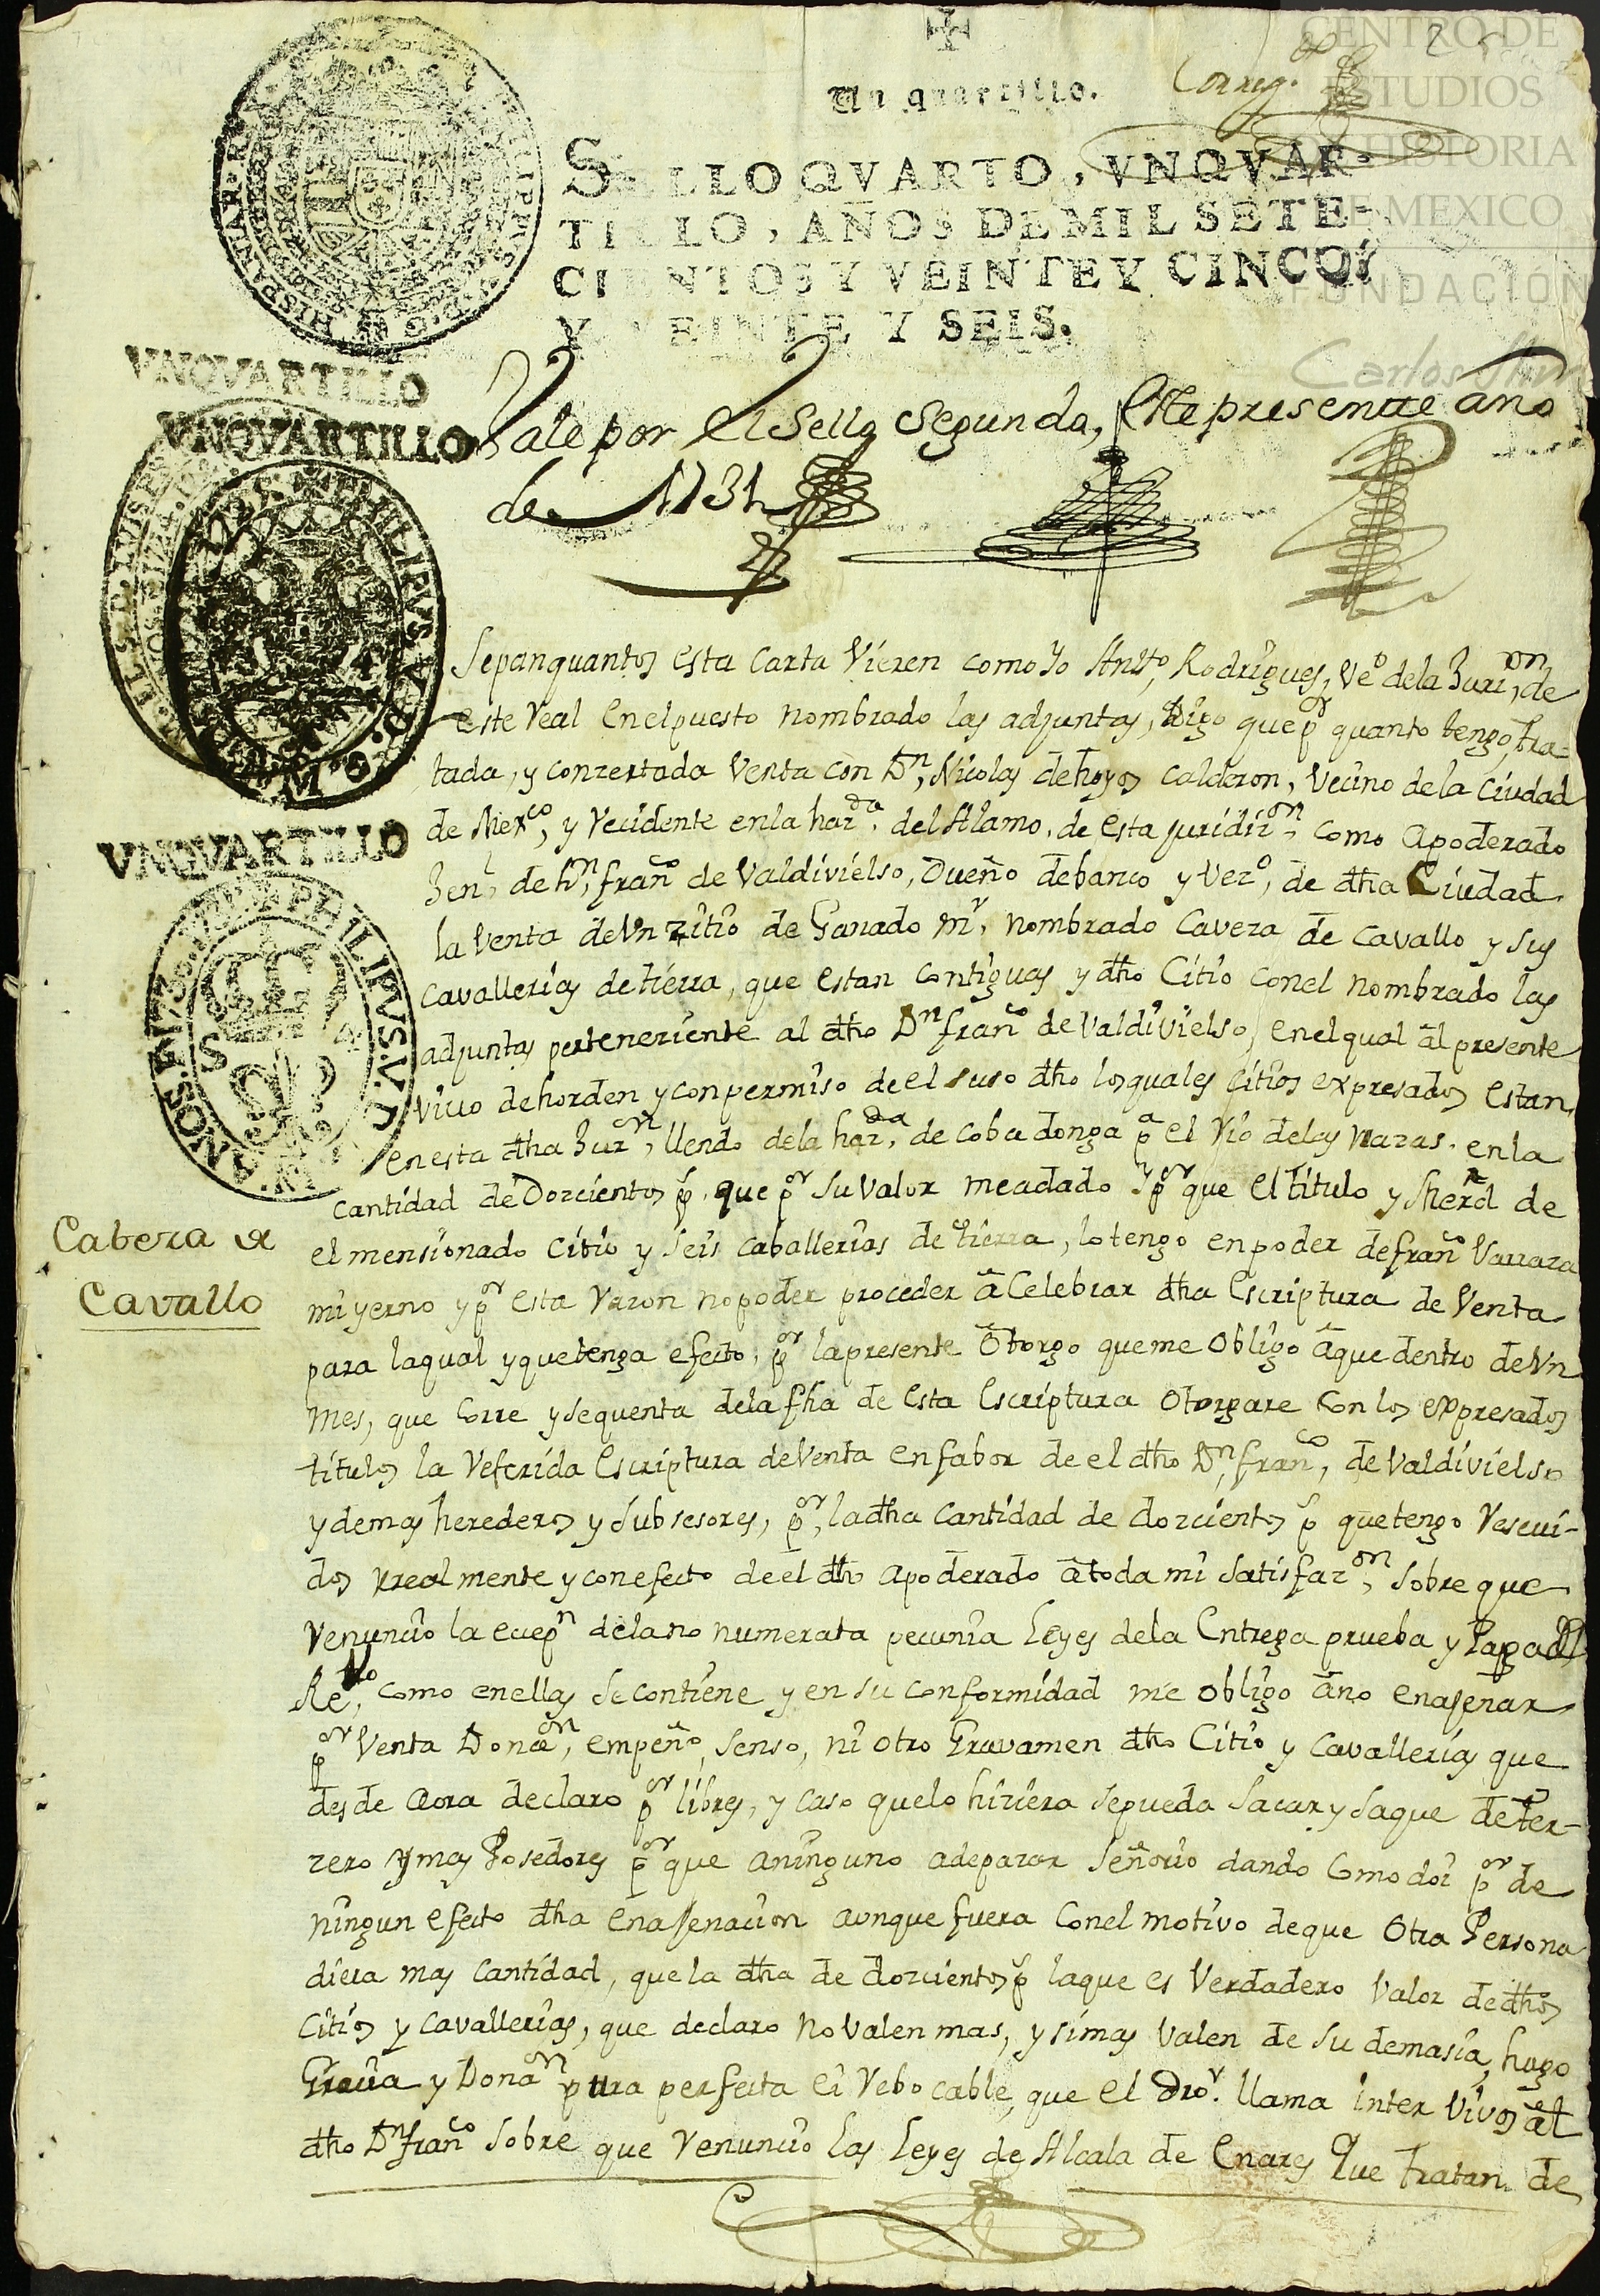 CENTRO DE
ESTUDIOS
DE HISTORIA
DE MEXICO
FUNDACIÓN
Carlos Slim
2
Correg.do
Un quartillo.
SELLO QVARTO, VNQVAR-
TILLO, AÑOS DE MIL SETE-
CIENTOS Y VEINTE Y CINCO Y
Y VEINTE Y SEIS.
VNQVARTILLO
VNQVARTILLO
Vale por el Sello Segundo, Este presente año
de 1731
VNQVARTILLO
PHILIPVS.V.D.
Sepan quantos esta Carta Vieren como Yo Antto, Rodrigues, Veo de la Juri,on de
este Real en el puesto nombrado las adjuntas, Digo que pr quanto tengo, tra-
tada, y conzertada Venta con Dn, Nicolas de hoyos Calderon, Vecino de la Ciudad
de Mexco, y Recidente en la hazda. del Alamo, de esta juridizon, como Apoderado
Jenl de Dn, franco de Valdivielso, Dueño de banco y Vezo, de dha Ciudad
la Venta de Vn zitio de Ganado mr, nombrado Caveza de Cavallo y sus
Cavallerias de tierra, que estan contiguas y dho Citio con el nombrado las
adjuntas perteneziente al dho Dn franco de Valdivielso, en el qual al presente
vivo de horden y con permiso de el suso dho los quales Citios expresados estan
en esta dha Juron, llendo de la hazda, de cobadonga pa el Rio de las Nazas. en la
Cantidad de Dozcientos ps, que pr su Valor me a dado Y pr que el titulo y Merd de
el mensionado Citio y seis caballerias de tierra, lo tengo en poder de franco Varraza
mi yerno y pr esta Razon no poder proceder a Celebrar dha Escriptura de Venta
para la qual y que tenga efecto, pr la presente Otorgo que me Obligo a que dentro de Vn
Mes, que Corre y se quenta de la fha de esta Escriptura Otorgare Con los expresados
titulos la Referida Escriptura de Venta en fabor de el dho Dn, franco, de Valdivielso
y demas herederos y subsesores, pr, la dha Cantidad de dozcientos ps que tengo Reseui-
dos rrealmente y con efecto de el dho apoderado a toda mi satisfazon, sobre que
Renuncio la ecepn de la no numerata pecunia Leyes de la Entrega prueba y Paga del
Reuo, como en ellas se contiene y en su conformidad me obligo a no enajenar
pr Venta Donaon, empeño, senso, ni otro Gravamen dho Citio y Cavallerias que
desde aora declaro pr libres, y caso que lo hiziera se pueda sacar y saque de ter-
zero y mas Posedores pr que a ninguno a de pazar Señorio dando Como doi pr de
ningun efecto dha enajenacion aunque fuera Con el motivo de que Otra Persona
diera mas Cantidad, que la dha de dozcientos ps la que es Verdadero Valor de dhos
Citios y Cavallerias, que declaro no Valen mas, y si mas Valen de su demasia, hago
Gracia y Donaon pura perfecta e irrebocable, que el Dro. llama inter Vivos a el
dho Dn franco sobre que Renuncio las Leyes de Alcala de Enares Que tratan de
Cabeza de
Cavallo